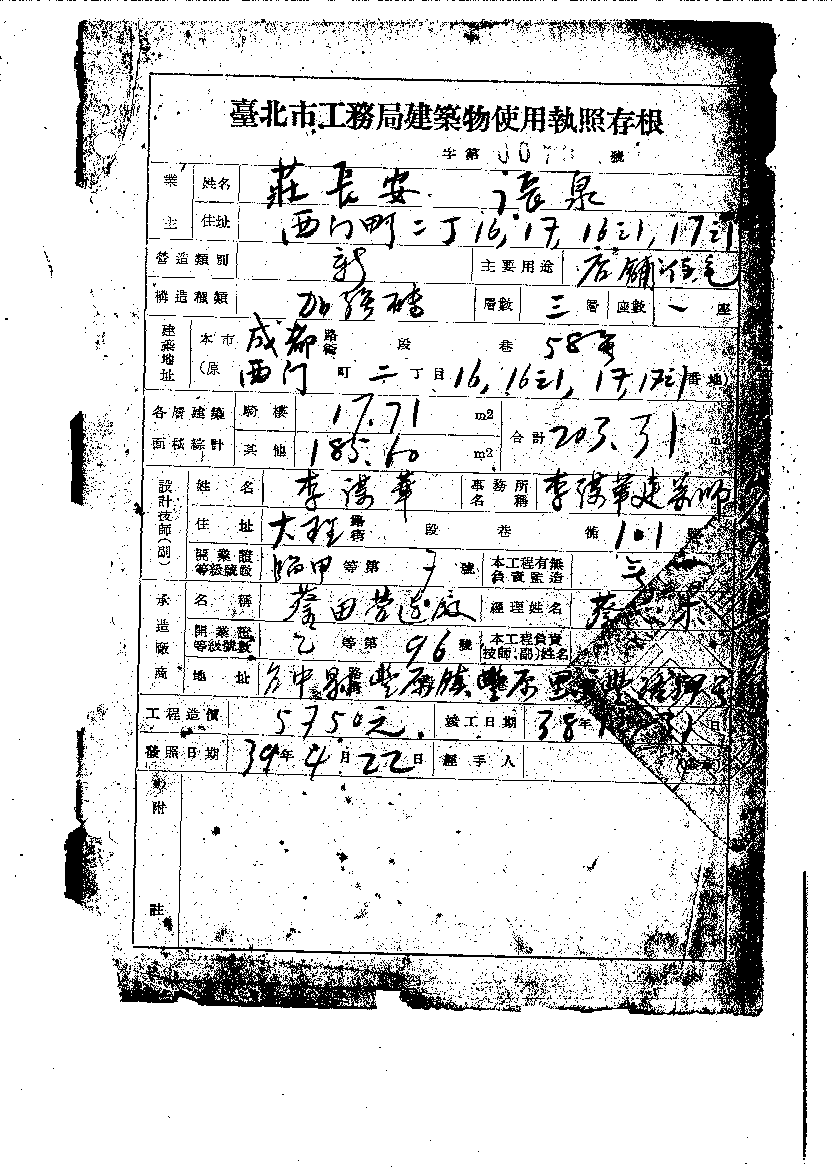 臺北市工務局建築物使用執照存根
字第 007 號
業主 姓名 莊長安 長泉
住址 西门町二丁16,17,16之1,17之1
營造類別 新 主要用途 店舖住宅
構造種類 加強磚 層數 三層 座數 一座
建築地址 本市 成都 路街 段 巷 58号
(原 西门町二丁目16,16之1,17,17之1番地)
各層建築面積綜計 騎樓 17.71 m2 合計 203.31 m2
其他 185.60 m2
設計技師(副) 姓名 李謀華 事務所名稱 李謀華建築師
住址 大 路街 段 巷 101 號
開業證等級號數 甲等第 號 本工程有無負責監造
承造廠商 名稱 田营造廠 經理姓名 蔡
開業證等級號數 乙等第 96 號 本工程負責技師(副)姓名
地址 台中縣豐原鎮豐原里
工程造價 5750元 竣工日期 38年 31日
發照日期 39年4月22日 經手人
附註